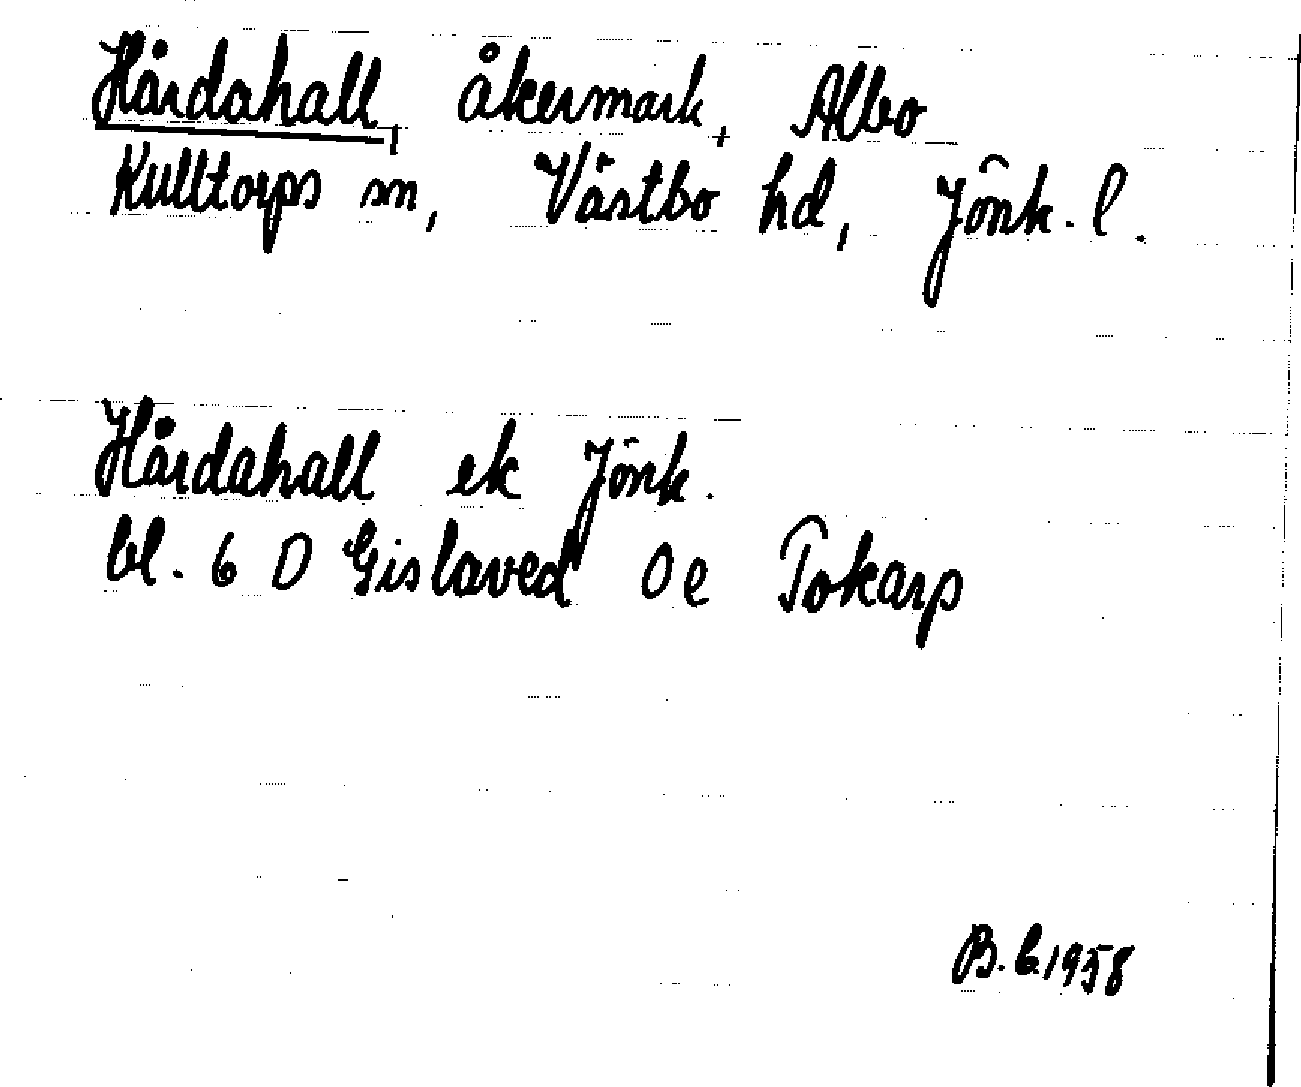 Hårdahall, åkermark, Albo
Kulltorps sn, Västbo hd, Jönk. l.
Hårdahall ek Jönk.
bl. 6 D Gislaved 0e Tokarp
B. 1958